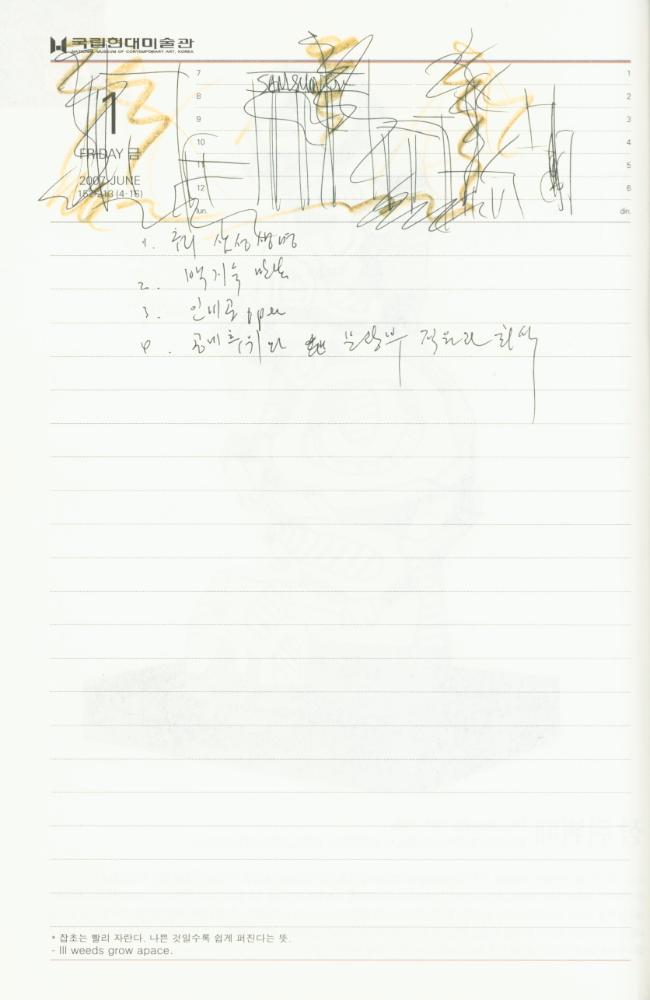 국립현대미술관
NATIONAL MUSEUM OF CONTEMPORARY ART, KOREA
1
FRIDAY 금
2007 JUNE
152-213 (4·16)
7
8
9
10
11
12
lun.
SAMSUNG
1
2
3
4
5
6
din.
1. 삼성생명
2. 백지숙 만남
3. 인미공 open
4. 직원과 회식
* 잡초는 빨리 자란다. 나쁜 것일수록 쉽게 퍼진다는 뜻.
- Ill weeds grow apace.